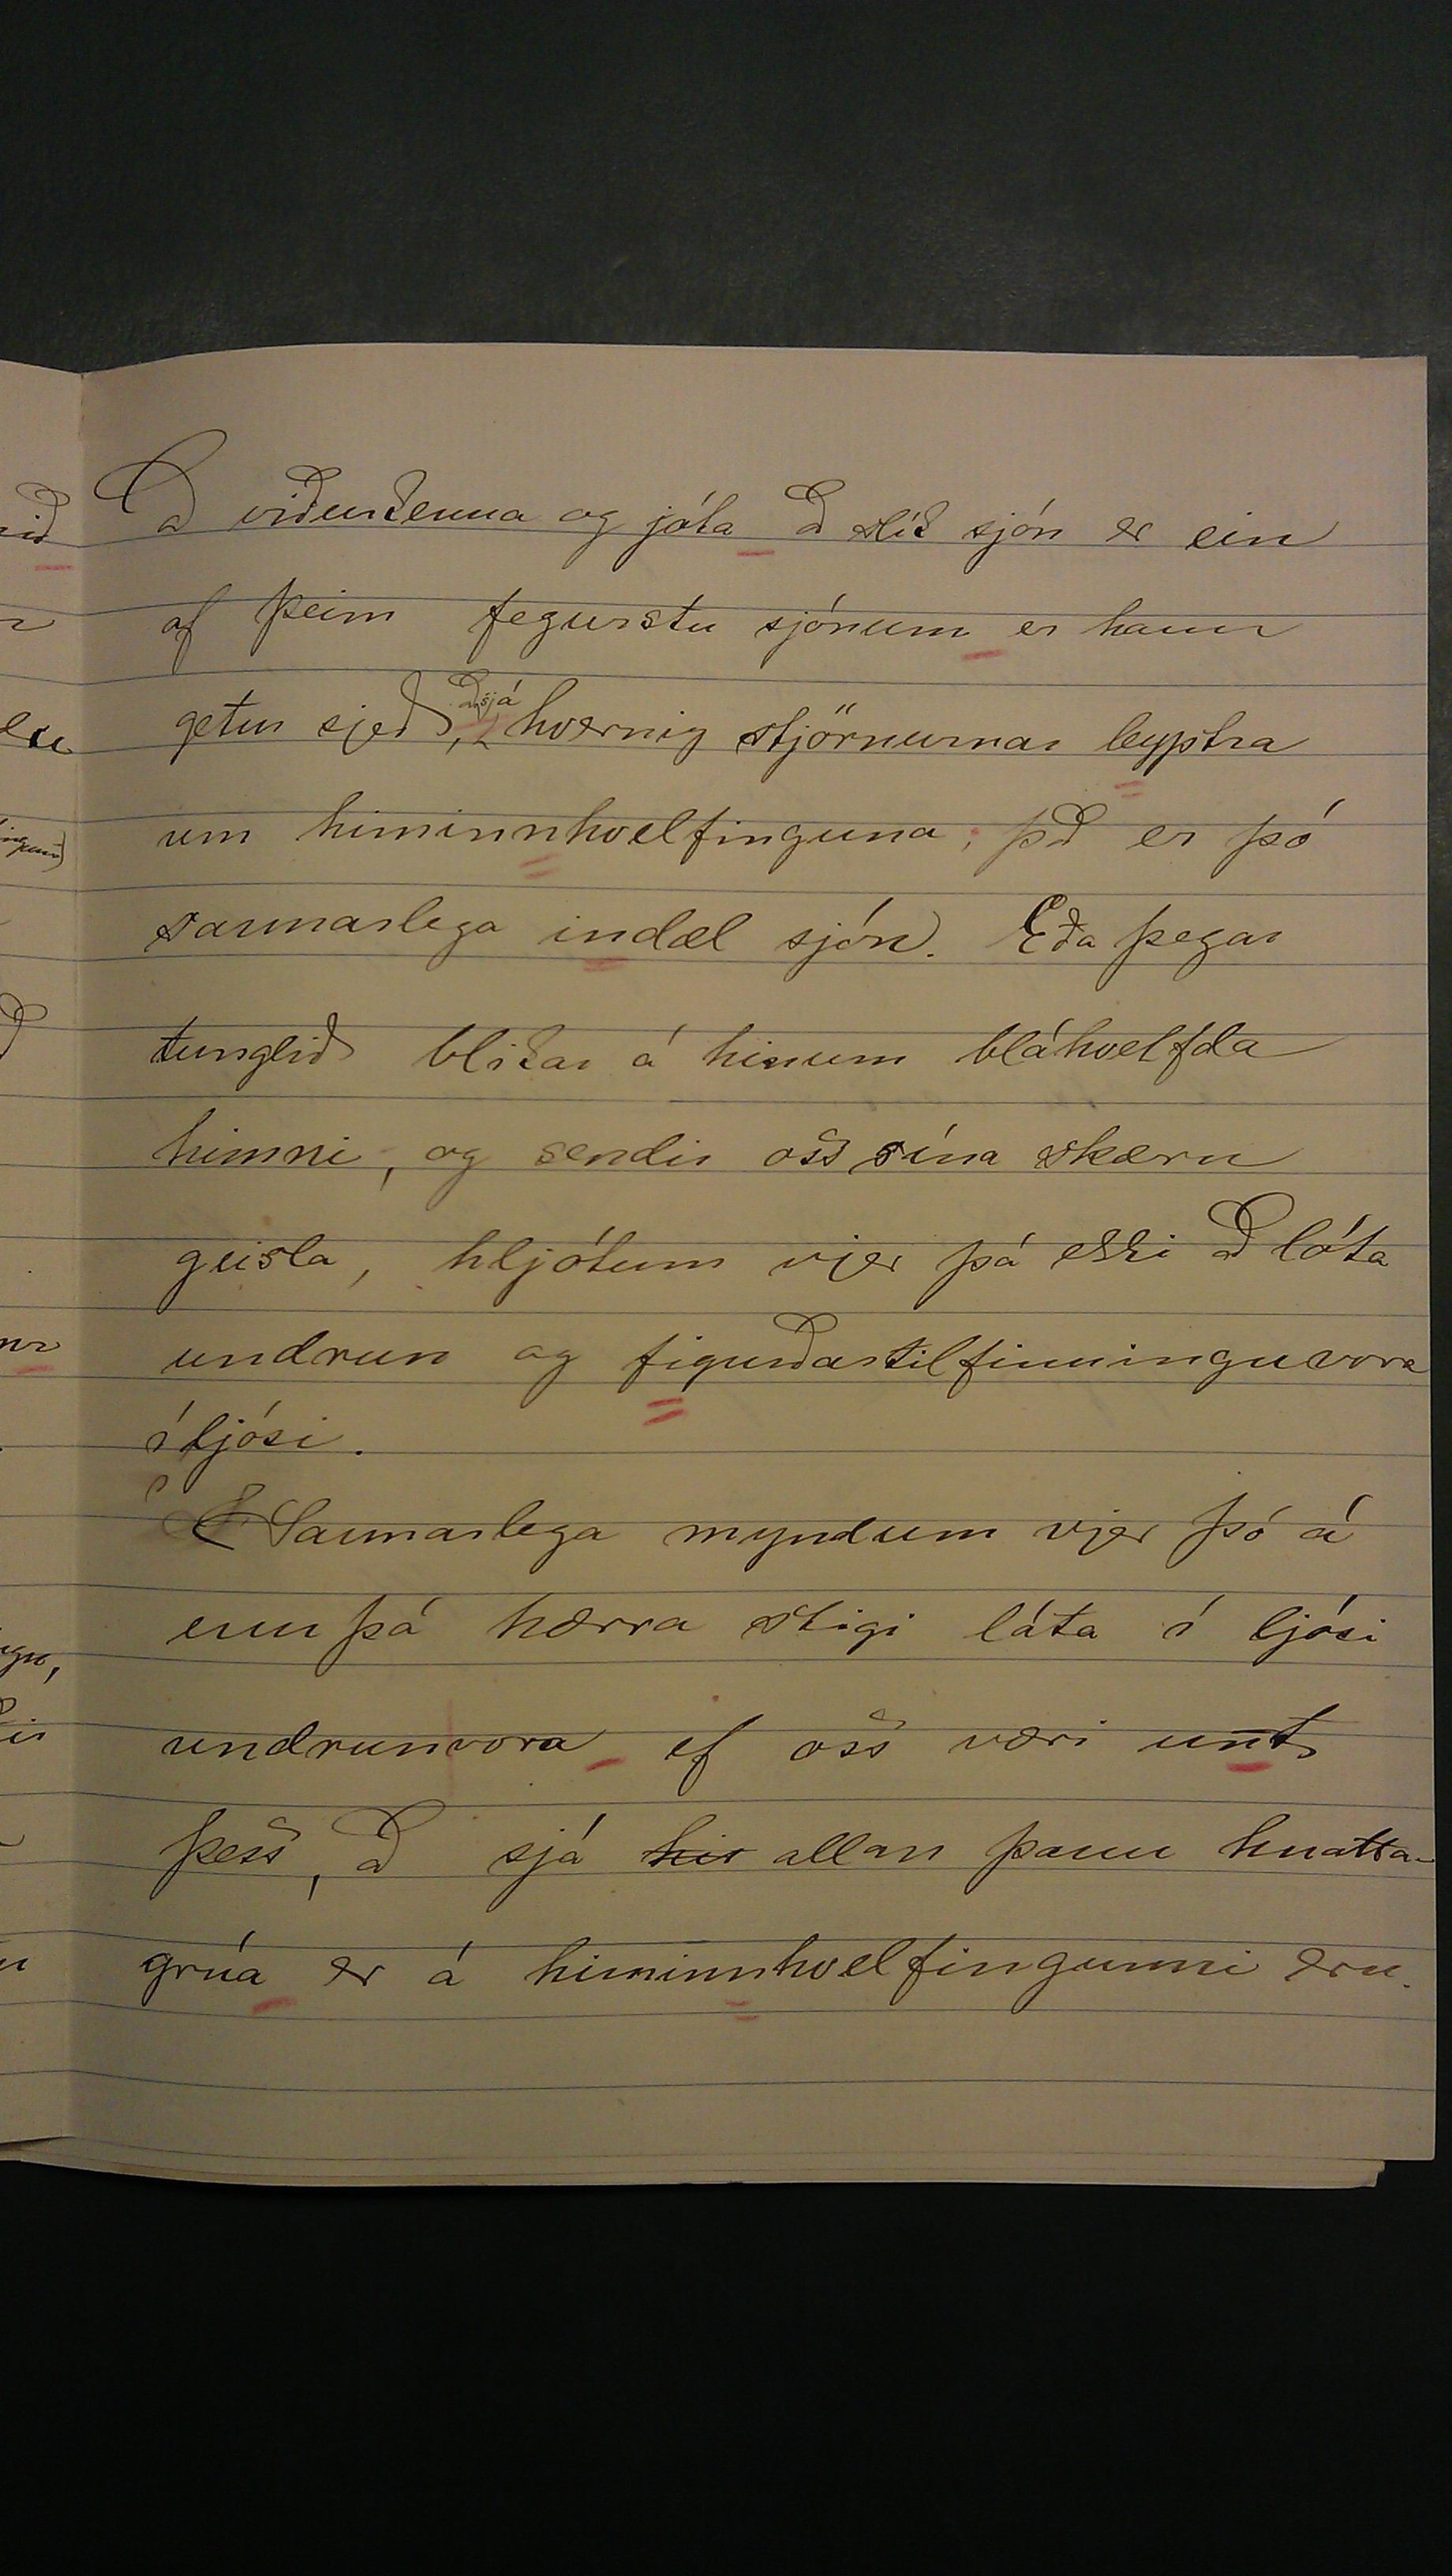 að viðurkenna og játa að slík sjón er ein
af þeim fegurstu sjónum er hann
getur sjeð, að sjá hvernig stjörnurnar leyptra
um himinnhvelfinguna; það er þó
sannarlega indæl sjón. Eða þegar
tunglið blikar á hinum bláhvelfda
himni, og sendir oss sína skæru
geisla, hljótum vjer þá ekki að láta
undrun og figurðartilfinningu vora
í ljósi.
Sannarlega myndum vjer þó á
enn þá hærra stigi láta í ljósi
undrun vora ef oss væri unt
þess, að sjá his allan þann hnatta-
grúa er á himinnhvelfingunni eru.